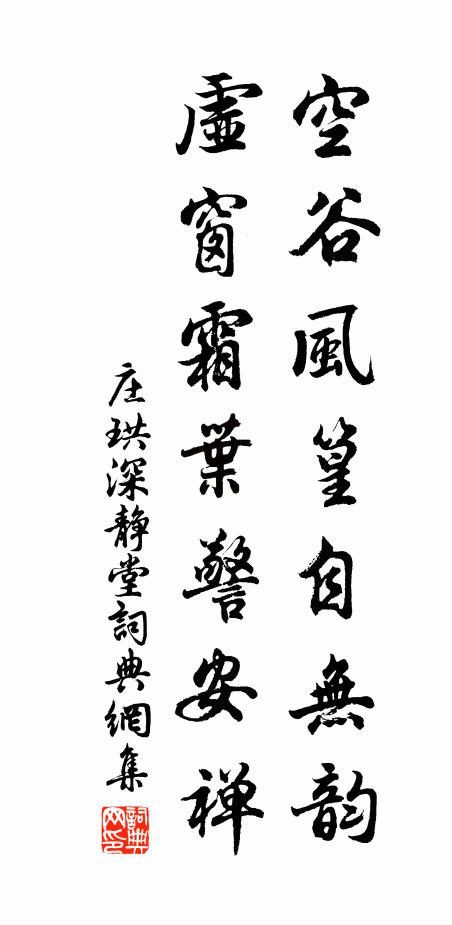 空谷風篁自無韵
虛窗霜葉警安禅
庄珙深静堂詞典網集
詞典网印